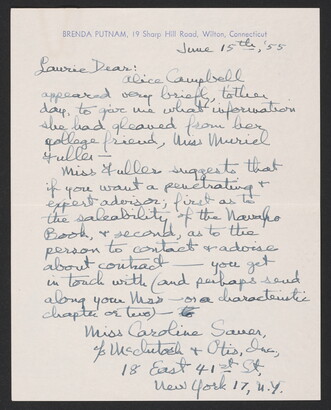 BRENDA PUTNAM, 19 Sharp Hill Road, Wilton, Connecticut
June 15th, '55
Laurie Dear:
Alice Campbell
appeared very briefly, t'other
day, to give me what information
she had gleaned from her
college friend, Miss Muriel
Fuller —
Miss Fuller suggests that
if you want a penetrating &
expert advisor, first as to
the saleability of the Navaho
Book, & second, as to the
person to contact & advise
about contract — you get
in touch with (and perhaps send
along your Mss — or a characteristic
chapter or two) — to
Miss Caroline Sauer,
c/o McIntosh & Otis, Inc,
18 East 41st St,
New York 17, N.Y.